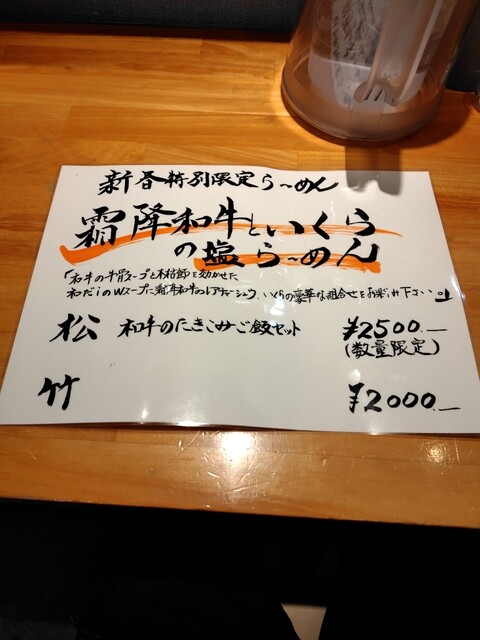 新春特別限定ら〜めん
霜降和牛といくら
の塩ら〜めん
「和牛の牛骨スープと本枯節を効かせた
和だしのWスープに霜降和牛のレアチャーシュウ、いくらの豪華な組合せをお楽しみ下さい。」
松 和牛のたきこみご飯セット ¥2500.―
(数量限定)
竹 ¥2000.―